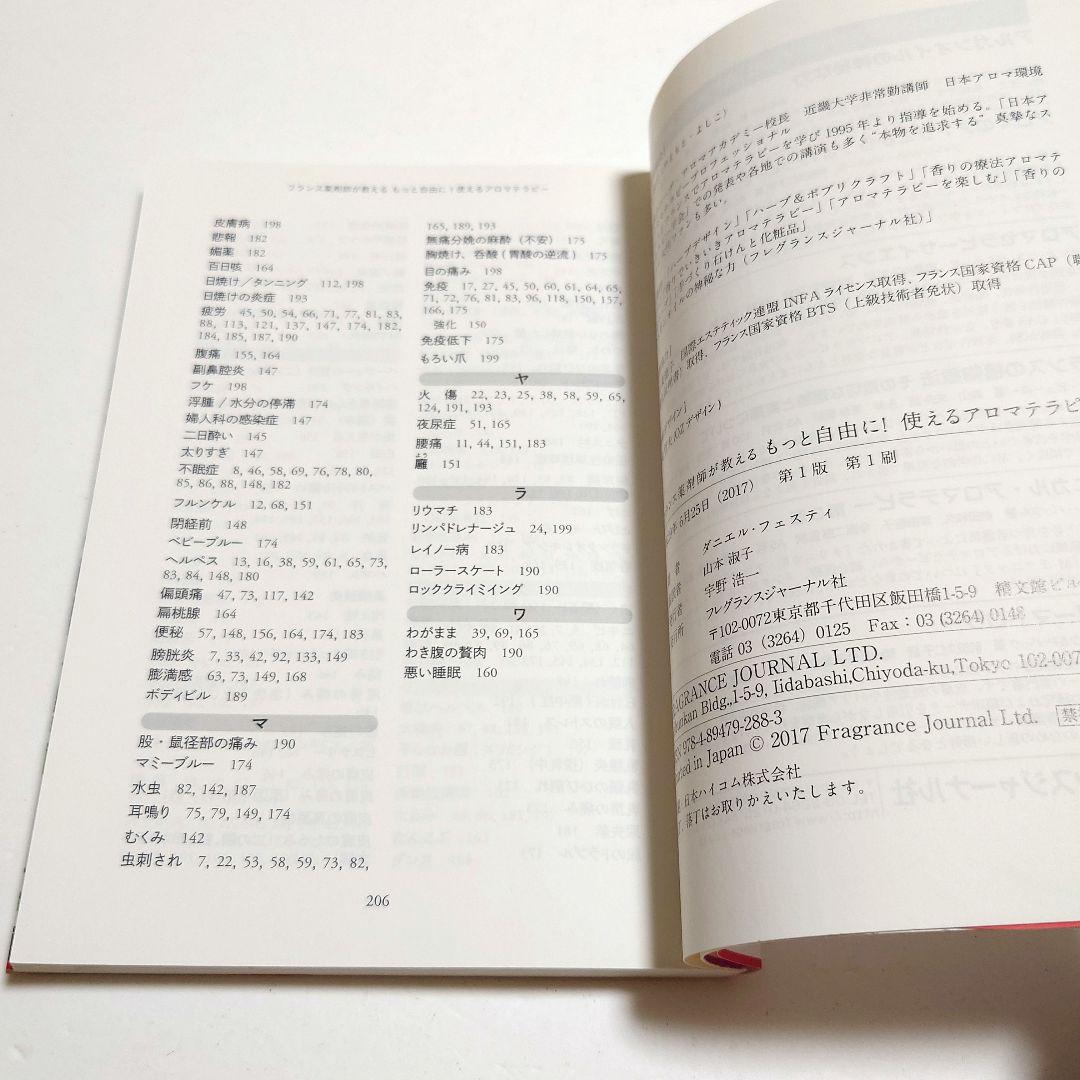 フランス薬剤師が教える もっと自由に！使えるアロマテラピー
皮膚病 198
悲報 182
媚薬 182
百日咳 164
日焼け／タンニング 112, 198
日焼けの炎症 193
疲労 45, 50, 54, 66, 71, 77, 81, 83,
88, 113, 121, 137, 147, 174, 182,
184, 185, 187, 190
腹痛 155, 164
副鼻腔炎 147
フケ 198
浮腫 / 水分の停滞 174
婦人科の感染症 147
二日酔い 145
太りすぎ 147
不眠症 8, 46, 58, 69, 76, 78, 80,
85, 86, 88, 148, 182
フルンケル 12, 68, 151
閉経前 148
ベビーブルー 174
ヘルペス 13, 16, 38, 59, 61, 65, 73,
83, 84, 148, 180
偏頭痛 47, 73, 117, 142
扁桃腺 164
便秘 57, 148, 156, 164, 174, 183
膀胱炎 7, 33, 42, 92, 133, 149
膨満感 63, 73, 149, 168
ボディビル 189
マ
股・鼠径部の痛み 190
マミーブルー 174
水虫 82, 142, 187
耳鳴り 75, 79, 149, 174
むくみ 142
虫刺され 7, 22, 53, 58, 59, 73, 82,
165, 189, 193
無痛分娩の麻酔（不安） 175
胸焼け、呑酸（胃酸の逆流） 175
目の痛み 198
免疫 17, 27, 45, 50, 60, 61, 64, 65,
71, 72, 76, 81, 83, 96, 118, 150, 157,
166, 175
強化 150
免疫低下 175
もろい爪 199
ヤ
火傷 22, 23, 25, 38, 58, 59, 65,
124, 191, 193
夜尿症 51, 165
腰痛 11, 44, 151, 183
よう
癰 151
ラ
リウマチ 183
リンパドレナージュ 24, 199
レイノー病 183
ローラースケート 190
ロッククライミイング 190
ワ
わがまま 39, 69, 165
わき腹の贅肉 190
悪い睡眠 160
206
よしこ）
アロマアカデミー校長 近畿大学非常勤講師 日本アロマ環境
ピープロフェッショナル
スでアロマテラピーを学び 1995 年より指導を始める。「日本ア
会」での発表や各地での講演も多く“本物を追求する” 真摯なス
も多い。
デザイン」「ハーブ＆ポプリクラフト」「香りの療法アロマテ
いきいきアロマテラピー」「アロマテラピーを楽しむ」「香りの
手づくり石けんと化粧品」
ルの神秘な力（フレグランスジャーナル社）」
国際エステティック連盟 INFA ライセンス取得、フランス国家資格 CAP（職
取得、フランス国家資格 BTS（上級技術者免状）取得
デザイン）
デザイン）
ンス薬剤師が教える もっと自由に！ 使えるアロマテラピ
6月25日（2017） 第1版 第1刷
ダニエル・フェスティ
山本 淑子
宇野 浩一
フレグランスジャーナル社
〒102-0072東京都千代田区飯田橋1-5-9 精文館ビル
電話 03（3264）0125 Fax：03 (3264) 0148
AGRANCE JOURNAL LTD.
nkan Bldg.,1-5-9, Iidabashi,Chiyoda-ku,Tokyo 102-007
978-4-89479-288-3
ed in Japan © 2017 Fragrance Journal Ltd. 禁
日本ハイコム株式会社
落丁はお取りかえいたします。